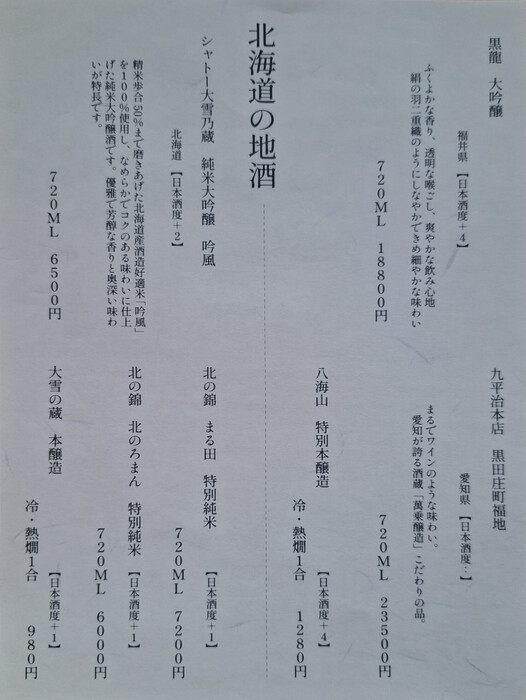 黒龍　大吟醸
福井県　【日本酒度＋4】
ふくよかな香り、透明な喉ごし、爽やかな飲み心地
絹の羽二重織のようにしなやかできめ細やかな味わい
720ML　18800円
九平治本店　黒田庄町福地
愛知県　【日本酒度：】
まるでワインのような味わい。
愛知が誇る酒蔵「萬乗醸造」こだわりの品。
720ML　23500円
八海山　特別本醸造
【日本酒度＋4】
冷・熱燗1合　1280円
北海道の地酒
シャトー大雪乃蔵　純米大吟醸　吟風
北海道　【日本酒度＋2】
精米歩合50％まで磨きあげた北海道産酒造好適米「吟風」
を100％使用し、なめらかでコクのある味わいに仕上
げた純米大吟醸酒です。優雅で芳醇な香りと奥深い味わ
いが特長です。
720ML　6500円
北の錦　まる田　特別純米
【日本酒度＋1】
720ML　7200円
北の錦　北のろまん　特別純米
【日本酒度＋1】
720ML　6000円
大雪の蔵　本醸造
【日本酒度＋1】
冷・熱燗1合　980円